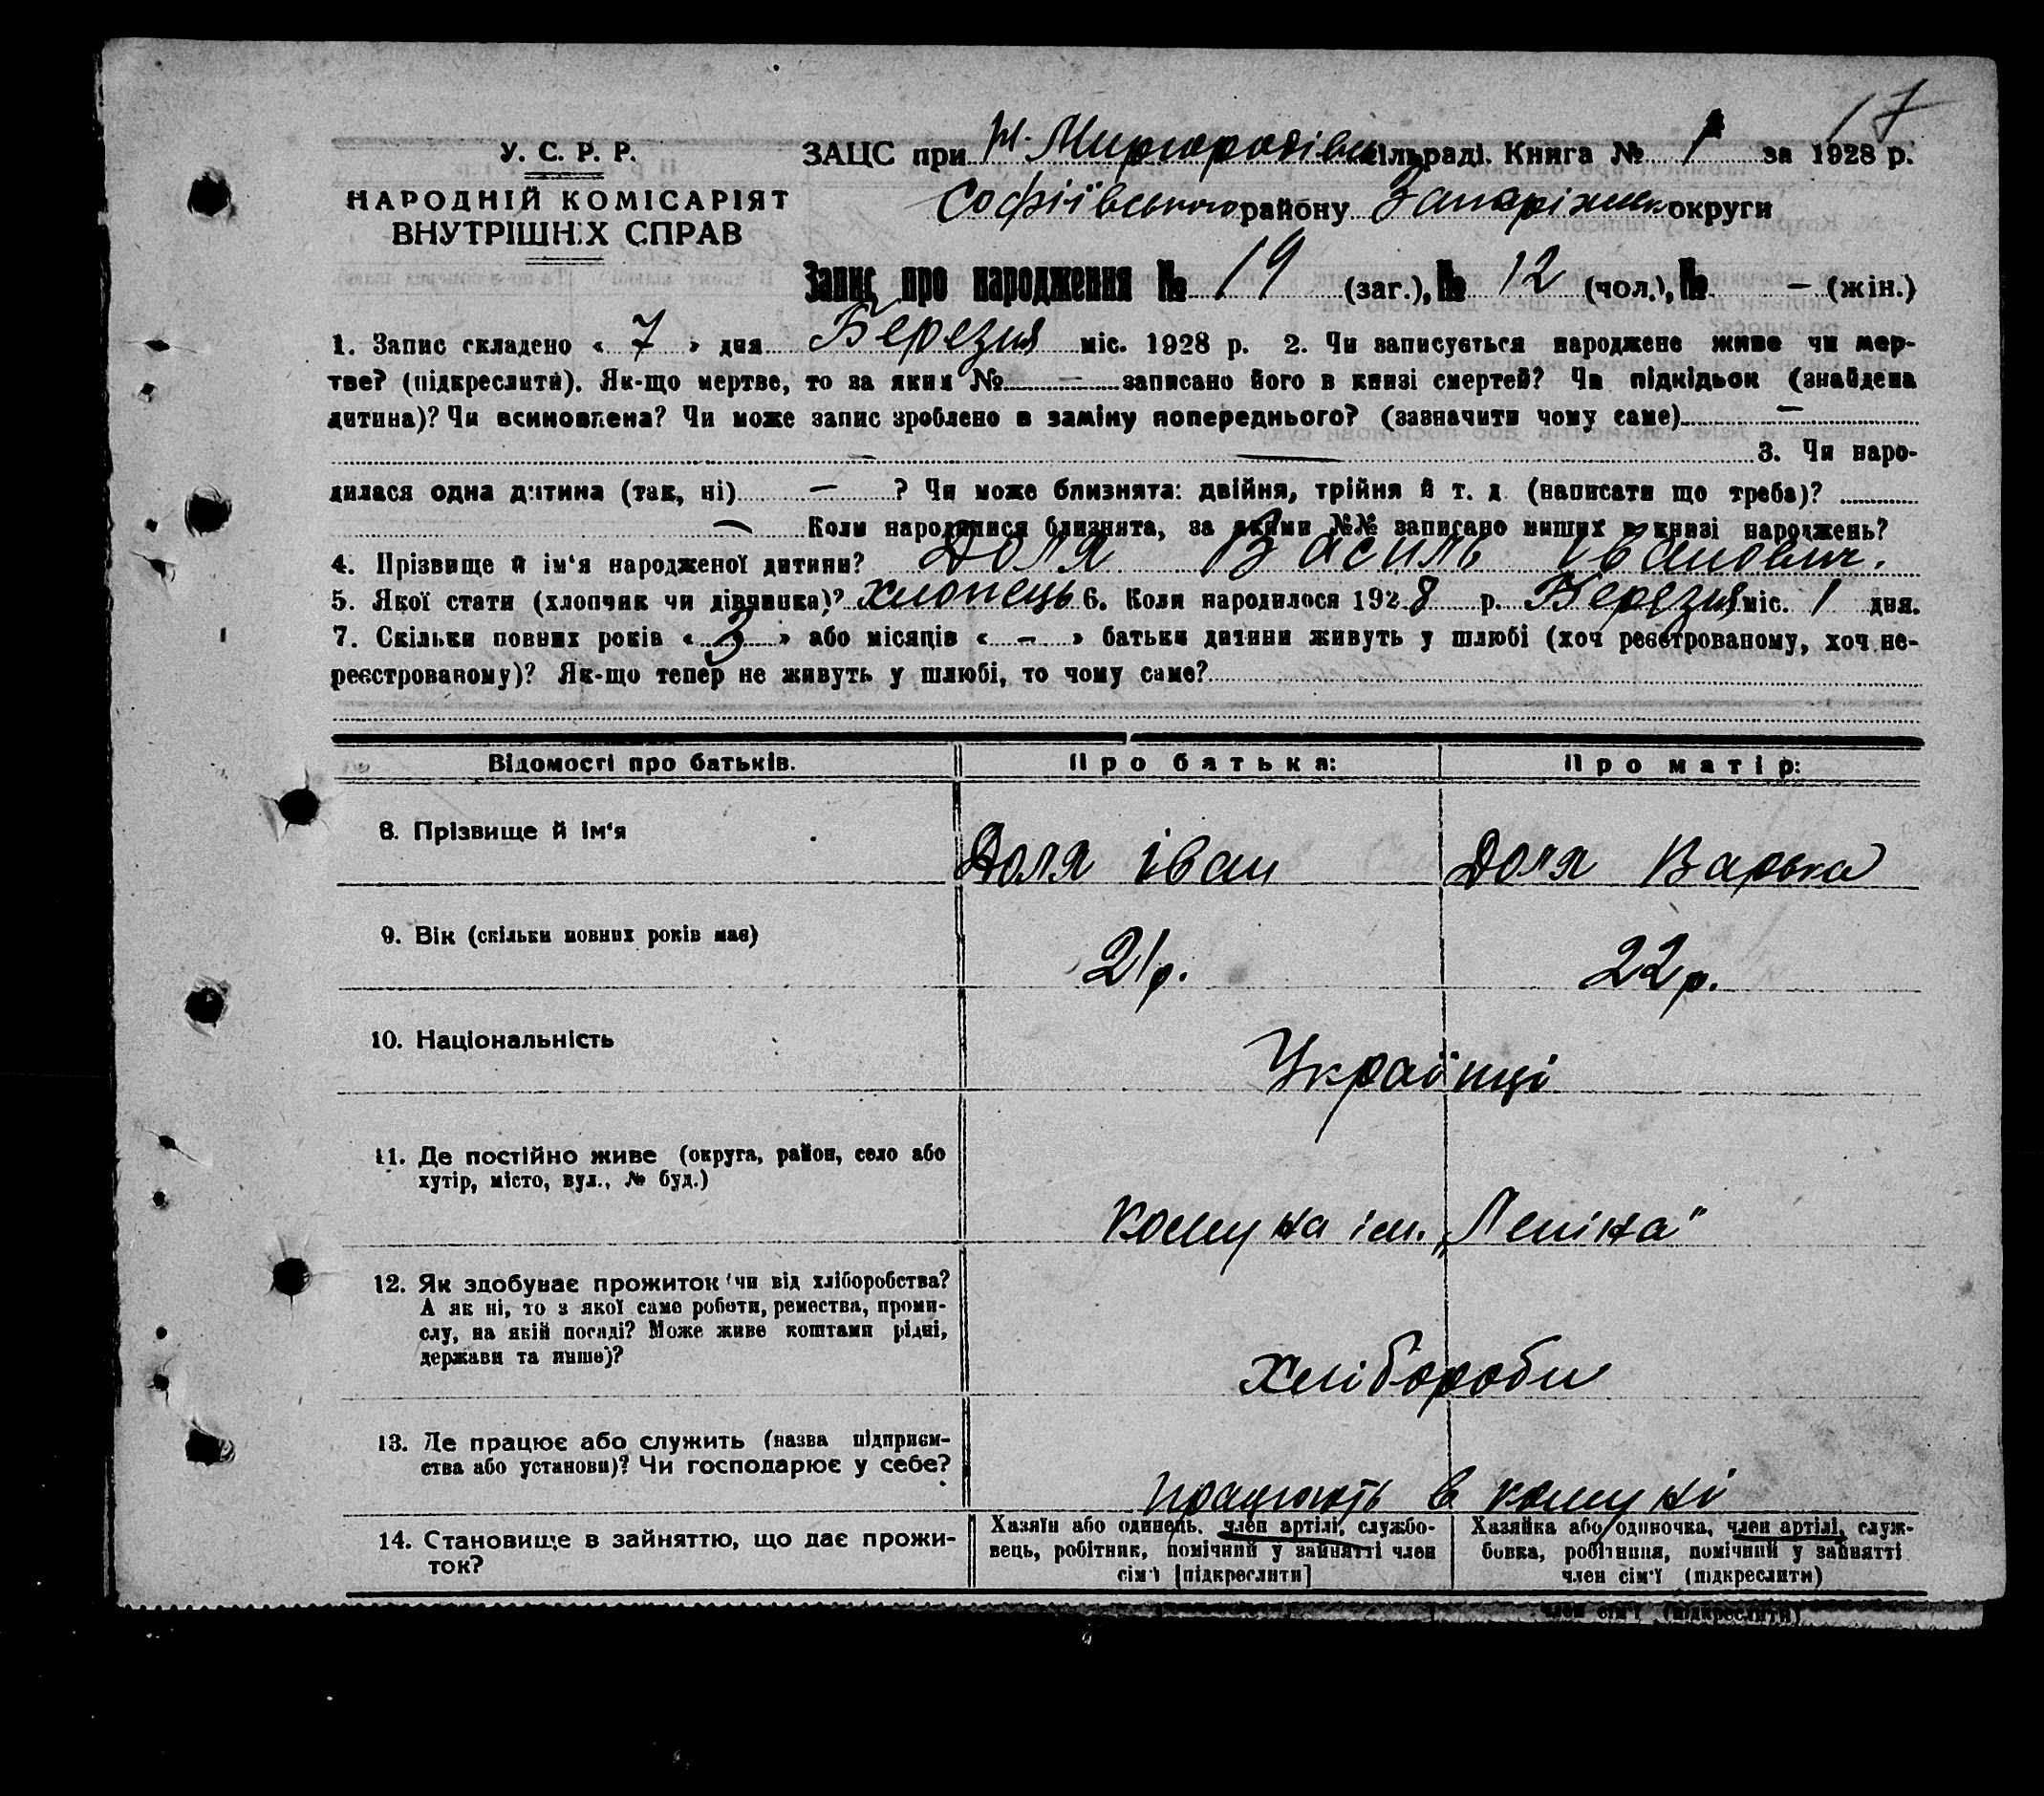 17
У. С. Р. Р.
НАРОДНІЙ КОМІСАРІЯТ
ВНУТРІШНІХ СПРАВ
ЗАЦС при Н. Миргородівськ. сільраді. Книга № 1 за 1928 р.
Софіївського району Запоріжськ округи
Запис про народження № 19 (заг.), № 12 (чол.), № – (жін.)
1. Запис складено « 7 » дня Березня міс. 1928 р. 2. Чи записується народжене живе чи мер-
тве? (підкреслити). Як-що мертве, то за яким № – записано його в книзі смертей? Чи підкідьок (знайдена
дитина)? Чи всиновлена? Чи може запис зроблено в заміну попереднього? (зазначити чому саме) –
– — 3. Чи наро-
дилася одна дитина (так, ні) – ? Чи може близнята: двійня, трійня й т. д (написати що треба)?
– Коли народилися близнята, за якими №№ записано инших в книзі народжень?
4. Прізвище й ім'я народженої дитини? Доля Василь Іванович.
5. Якої стати (хлопчик чи дівчинка)? хлопець 6. Коли народилося 1928 р. Березня міс. 1 дня.
7. Скільки повних років « 3 » або місяців « – » батьки дитини живуть у шлюбі (хоч реєстрованому, хоч не-
реєстрованому)? Як-що тепер не живуть у шлюбі, то чому саме?
Відомості про батьків. Про батька: Про матір:
8. Прізвище й ім'я Доля Іван Доля Варька
9. Вік (скільки повних років має) 21 р. 22 р.
10. Національність Українці
11. Де постійно живе (округа, район, село або
хутір, місто, вул., № буд.)
комуна ім. „Леніна"
12. Як здобуває прожиток (чи від хліборобства?
А як ні, то з якої саме роботи, ремества, проми-
слу, на якій посаді? Може живе коштами рідні,
держави та инше)?
хлібороби
13. Де працює або служить (назва підприєм-
ства або установи)? Чи господарює у себе?
працюють в комуні
14. Становище в зайняттю, що дає прожи-
ток?
Хазяїн або одинець, член артілі, службо-
вець, робітник, помічний у зайнятті член
сім'ї [підкреслити]
Хазяйка або одиночка, член артілі, служ-
бовка, робітниця, помічний у зайнятті
член сім'ї (підкреслити)
член сім'ї (підкреслити)